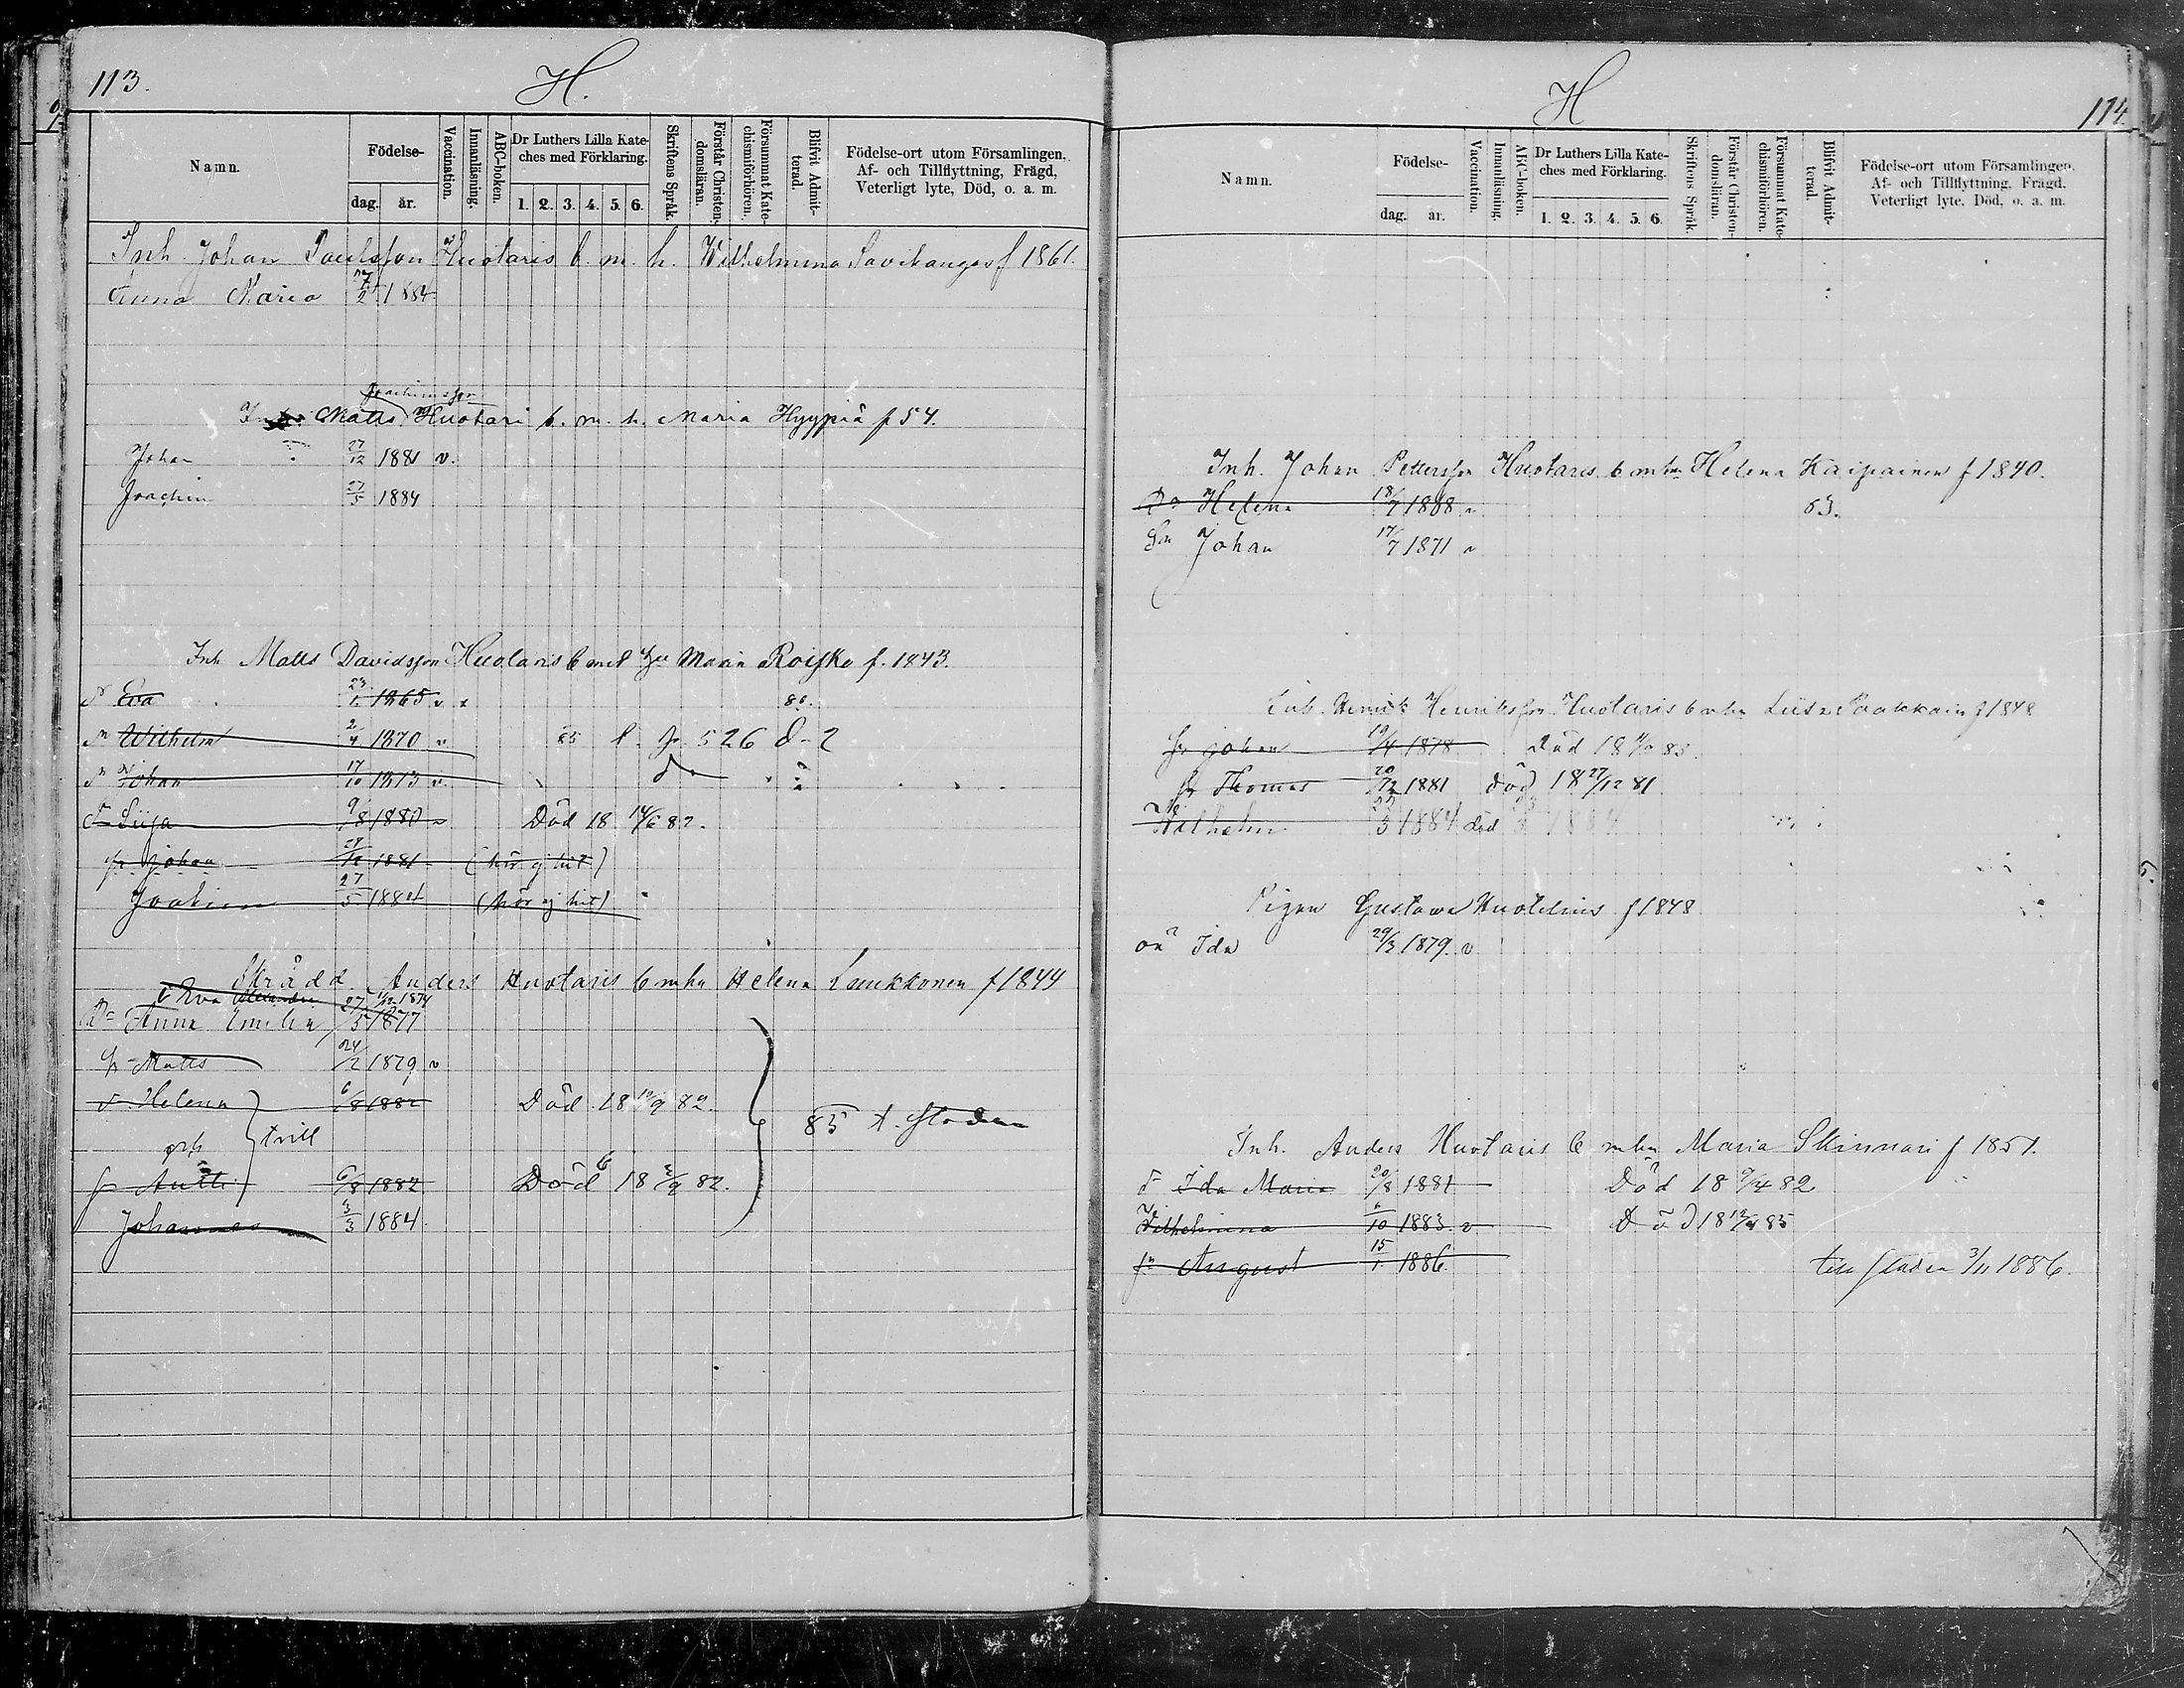 113.
H.
Namn.
Födelse-
dag. år.
Vaccination.
Innanläsning.
ABC-boken.
Dr Luthers Lilla Kate-
ches med Förklaring.
1. 2. 3. 4. 5. 6.
Skriftens Språk.
Förstår Christen-
domsläran.
Försummat Kate-
chismiförhören.
Blifvit Admit-
terad.
Födelse-ort utom Församlingen,
Af- och Tillflyttning, Frägd,
Veterligt lyte, Död, o. a. m.
Inh. Johan Paulsson Huotaris b. m. h. Wilhelmina Savikangas f 1861.
Anna Maria 27/2 1884
Joachimsson
Matts Huotari b. m. h. Maria Hyyppiä f 54.
Johan 27/12 1881 v.
Joachim 27/5 1884
Inh Matts Davidsson Huotaris b med hu Maria Roisko f. 1843.
Eva 1865 v
Wilhelm 2/4 1870 v 85 l. fr. 526 d-2
Johan 17/10 1873 v
Liisa 9/8 1880 v Död 18 14/6 82.
Johan 27/12 1881 (hör ej hit)
Joakim 27/5 1884 (hör ej hit)
Skrädd. Anders Huotaris b mhu Helena Leukkonen f 1844
Eva Alexandra 1874
Anna Emilia 27/5 1877
Matts 24/2 1879 v
Helena 6/8 1882 Död 18 10/9 82.
och } tvill
85 t. staden
Antti 6/8 1882 Död 18 82.
Johannes 3/3 1884
H
114.
Namn.
Födelse-
dag. år.
Vaccination.
Innanläsning.
ABC-boken.
Dr Luthers Lilla Kate-
ches med Förklaring.
1. 2. 3. 4. 5. 6.
Skriftens Språk.
Förstår Christen-
domsläran.
Försummat Kate-
chismiförhören.
Blifvit Admit-
terad.
Födelse-ort utom Församlingen,
Af- och Tillflyttning, Frägd,
Veterligt lyte, Död, o. a. m.
Inh. Johan Pettersson Huotaris b mhu Helena Kaipainen f 1840.
Helena 18/7 1868 v
Sn Johan 17/7 1871 v
Inh. Henrik Henriksson Huotaris b mhu Liisa Paakkain f 1848
Johan 19/4 1878 Död 18 83.
Thomas 20/12 1881 död 18 27/12 81
Wilhelm 1884 död 1884
Pigan Gustava Huotelius f 1848
oä Ida 29/3 1879. v
Inh. Anders Huotaris b mhu Maria Skinnari f 1851.
Ida Maria 20/8 1881 Död 18 9/4 82
Wilhelmina 6/10 1883. v Död 18 85
August 15/1 1886. till staden 3/11 1886.